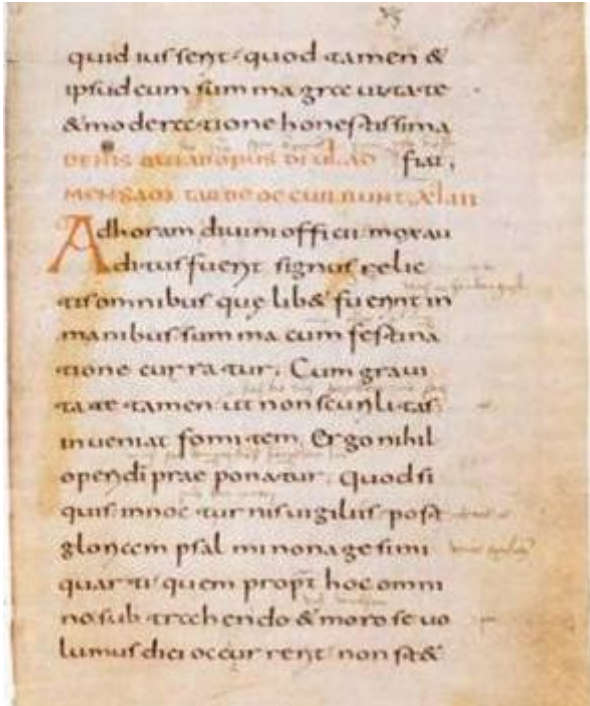 quid iussent quod tamen &
ipsud cum summa gravitate
& moderatione honestissima
DE HIS QUI AD OPUS DI VEL AD fiat,
MENSAM TARDE OCCURRUNT
Ad horam divini officii mox au
ditus fuerit signus relic
tis omnibus quę lib& fuerint in
manibus summa cum festina
tione curratur, Cum gravi
tate tamen ut non scurilitas
inveniat fomitem, Ergo nihil
operi di prae ponatur, quod si
quis in nocturnis vigiliis post
gloriam psalmi nonagesimi
quarti quem propt hoc omni
no subtrahendo & morose vo
lumus dici occurrerit non st&